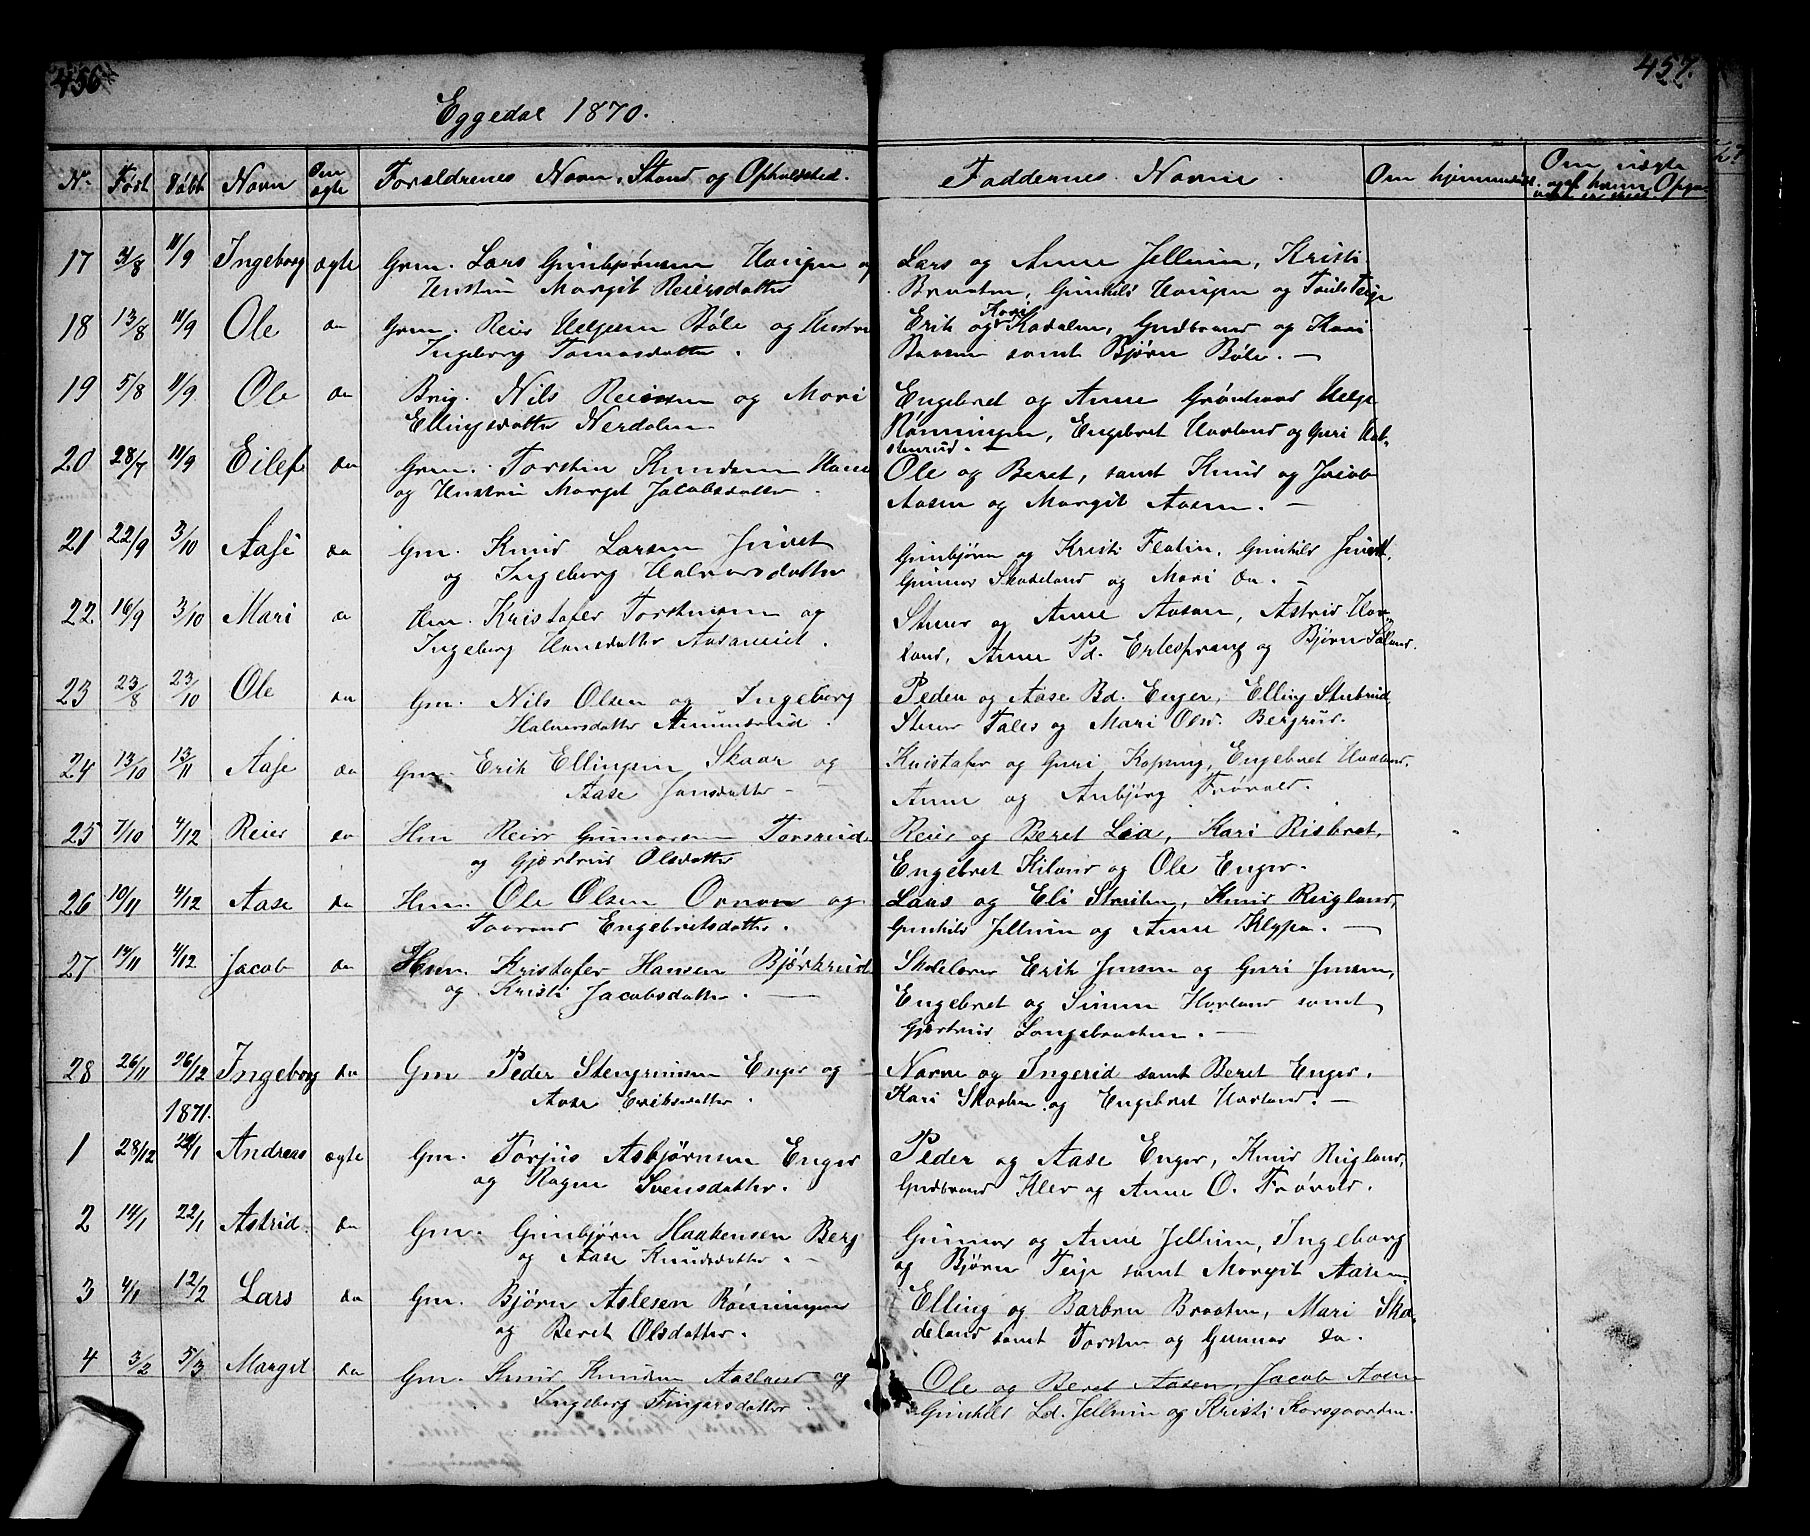 456
457.
Eggedal 1870.
No. Født Døbt Navn Om ægte Forældrenes Navn, Stand og Opholdsted.
Faddernes Navne. Om hjemmedøbt. Om uægte
17 31/8 11/9 Ingeborg ægte Grm. Lars Gunbjørnsen Haugen og
Hustru Margit Reiersdatter
Lars og Anne Jellum, Kristi
Braaten, Gunhild Haugen og Truls Teije
18 13/8 11/9 Ole do Grm. Reier Helgesen Bøle og Hustru
Ingeborg Tomasdatter.
Erik og Kari Kodalen, Gudbrand og Kari
samt Bjørn Bøle. —
19 5/8 11/9 Ole do Brig. Nils Reiersen og Mari
Ellingsdatter Nerdalen
Engebret og Anne Grønhovd Helge
Rønningen, Engebret Havland og Guri Hol-
20 28/7 11/9 Eilef do Grm. Torsten Knudsen
og Hustru Marget Jacobsdatter.
Ole og Beret, samt Knud og Jacob
Aasen og Margit Aasen. —
21 22/9 3/10 Aase do Gm. Knud Larsen Juvet
og Ingeborg Halvorsdatter
Gunbjørn og Kristi Flatin, Gunhild Juvet,
Gunnar Skadeland og Mari do. —
22. 16/9 3/10 Mari do Hm. Kristofer Torstensen og
Ingeborg Hansdatter Aasaneiet.
Stener og Anne Aasen, Astrid Hav-
land, Anne Pd. Ertesprang og Bjørn Søland.
23 23/8 23/10 Ole do Gm. Nils Olsen og Ingeborg
Halvorsdatter Amunsrud.
Peder og Aase Bd. Enger, Elling Stubrud,
Stener Fales og Mari Olsd. Bergrud.
24 13/10 13/11 Aase do Gm. Erik Ellingsen Skaar og
Aase Jonsdatter —
Kristofer og Guri Kopseng, Engebret Havland.
Anne og Anbjørg Frøvold.
25 7/10 4/12 Reier do Hm Reier Gunnarsen Torsrud
og Gjærtrud Olsdatter
Reier og Beret Lia, Kari Risbret,
Engebret Kiland og Ole Enger.
26 10/11 4/12 Aase do Hm. Ole Olsen og
Engebretsdatter.
Lars og Eli Struten, Knud Rugland,
Gunhild Jellum og Anne Klypen. —
27 14/11 4/12 Jacob do Hm. Kristofer Hansen Bjørkerud
og Kristi Jacobsdatter. —
Skolelærer Erik Jensen og Guri Jensen,
Engebret og Simen Havland samt
Gjertrud Langebraaten. —
28 26/11 26/12 Ingeborg do Gm Peder Stengrimsen Enger og
Aase Eriksdatter.
Narve og Ingerid samt Beret Enger.
Kari Skarten og Engebret Havland. —
1871.
1 28/12 22/1 Andreas ægte Gm. Torjus Asbjørnsen Enger
og Ragne Svensdatter.
Peder og Aase Enger, Knud Rugland,
Gudbrand Klev og Anne O. Frøvold.
2 14/1 22/1 Astrid. do Gm. Gunbjørn Haakensen Berg
og Aase Knudsdatter. —
Gunnar og Anne Jellum, Ingeborg
og Bjørn Teije samt Margit Aasen.
3 4/1 12/2 Lars do Gm. Bjørn Aslesen Rønningen
og Beret Olsdatter.
Elling og Barbru Braaten, Mari Ska-
deland samt Torsten og Gunnar do.
4 3/2 5/3 Marget do Gm. Knud Knudsen Aasland og
Ingeborg Fingarsdatter.
Ole og Beret Aasen, Jacob Aasen
Gunhild Ld. Jellum og Kristi Korsgaarden.